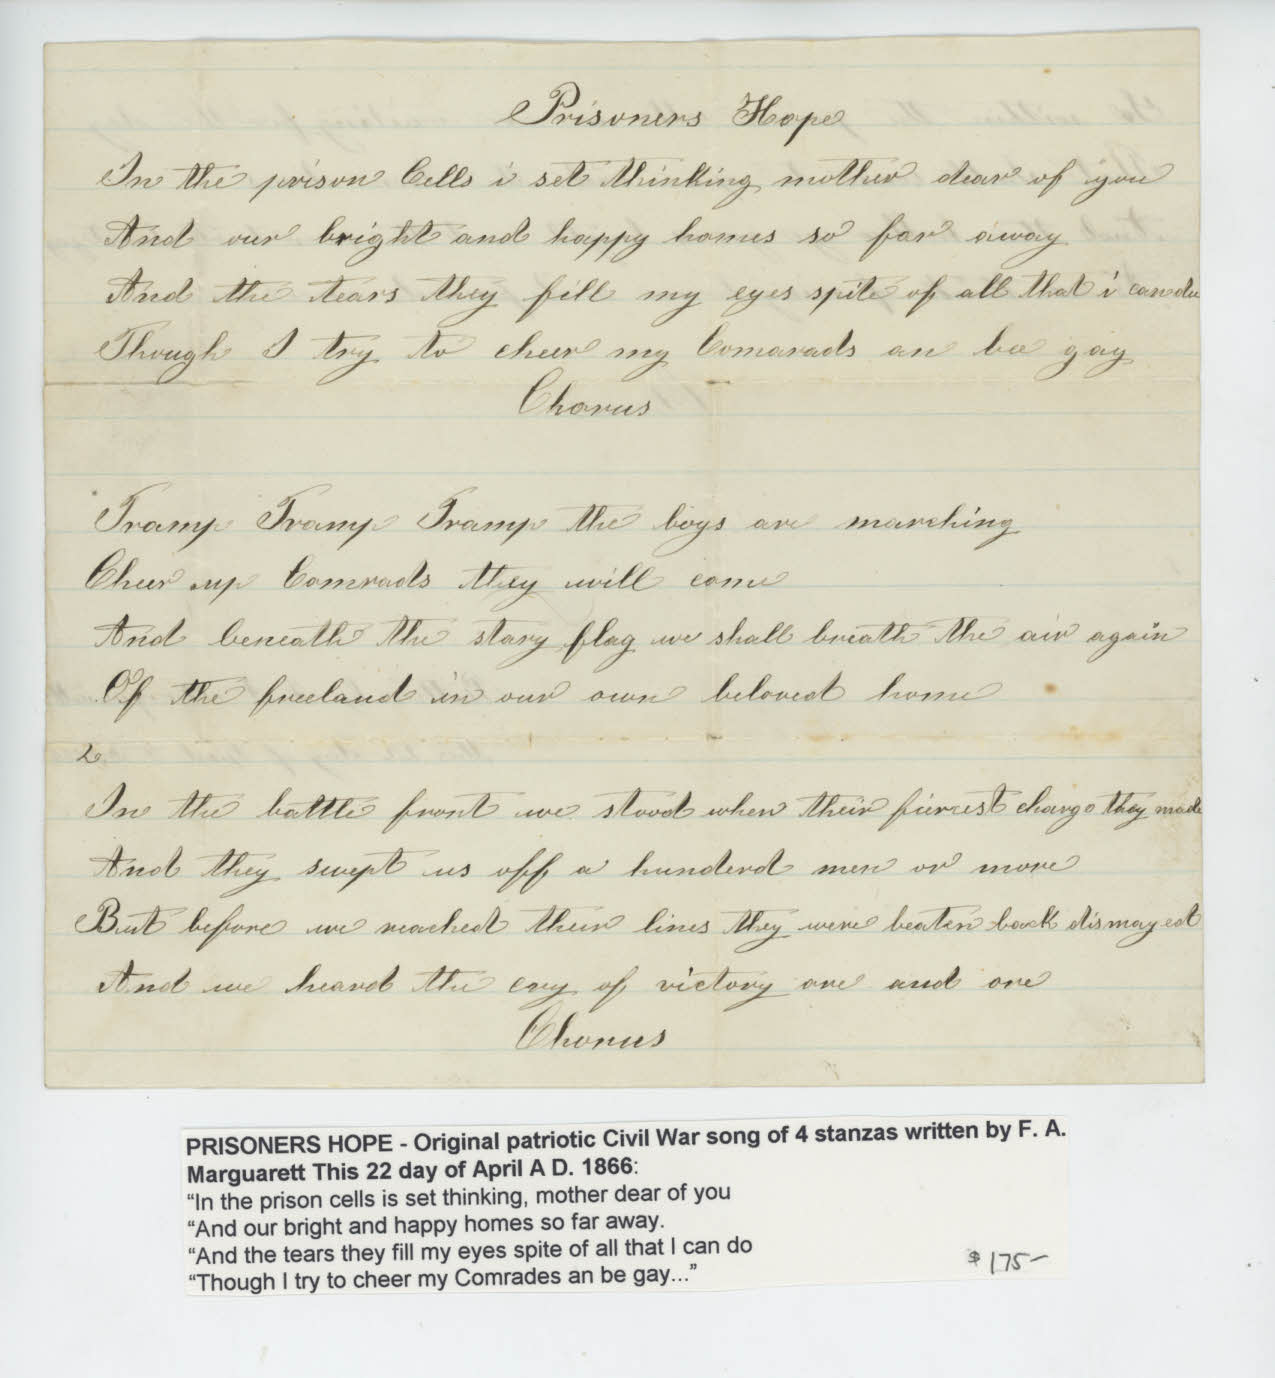 Prisoners Hope
In the prison Cells i set thinking mother dear of you
And our bright and happy homes so far away
And the tears they fill my eyes spite of all that i can du
Though I try to cheer my Comarads an be gay
Chorus
Tramp Tramp Tramp the boys are marching
Cheer up Comrads they will come
And beneath the stary flag we shall breath the air again
Of the freeland in our own beloved home
2
In the battle front we stood when their fiercest charge they made
And they swept us off a hunderd men or more
But before we reached their lines they were beaten back dismayed
And we heard the cry of victory ore and ore
Chorus
PRISONERS HOPE - Original patriotic Civil War song of 4 stanzas written by F. A.
Marguarett This 22 day of April A D. 1866:
“In the prison cells is set thinking, mother dear of you
“And our bright and happy homes so far away.
“And the tears they fill my eyes spite of all that I can do
“Though I try to cheer my Comrades an be gay...”
$175-